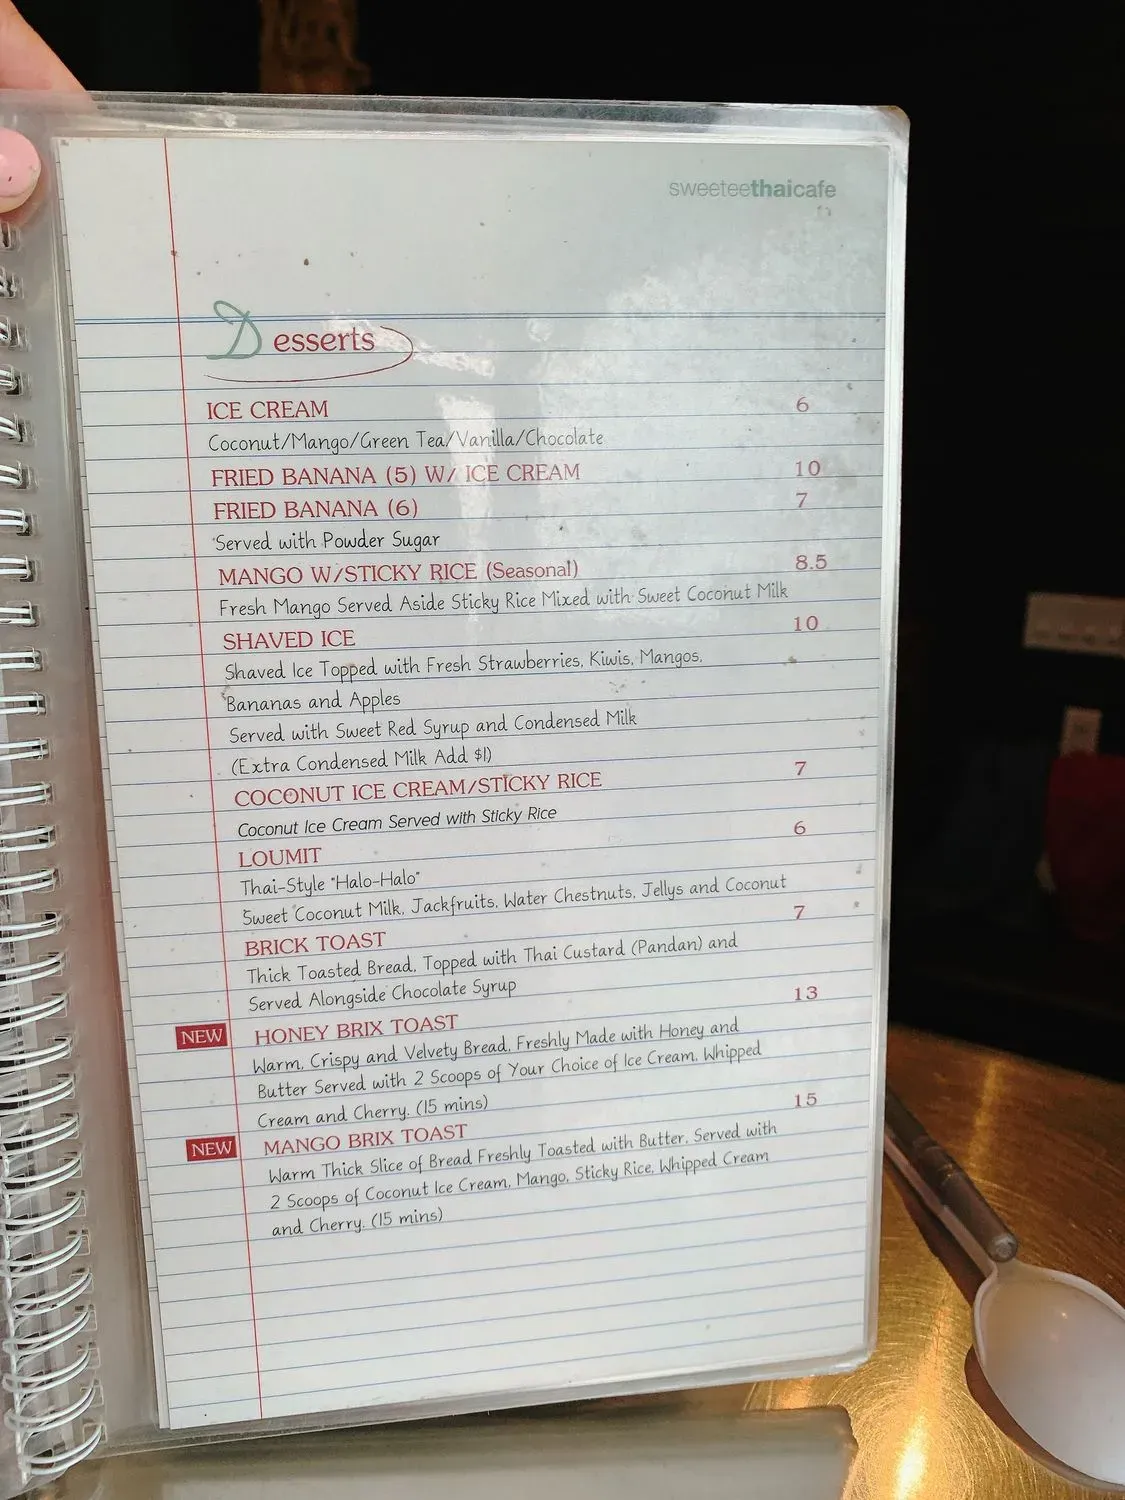 sweeteethaicafe
Desserts
ICE CREAM 6
Coconut/Mango/Green Tea/Vanilla/Chocolate
FRIED BANANA (5) W/ ICE CREAM 10
FRIED BANANA (6) 7
Served with Powder Sugar
MANGO W/STICKY RICE (Seasonal) 8.5
Fresh Mango Served Aside Sticky Rice Mixed with Sweet Coconut Milk
SHAVED ICE 10
Shaved Ice Topped with Fresh Strawberries, Kiwis, Mangos,
Bananas and Apples
Served with Sweet Red Syrup and Condensed Milk
(Extra Condensed Milk Add $1)
COCONUT ICE CREAM/STICKY RICE 7
Coconut Ice Cream Served with Sticky Rice
LOUMIT 6
Thai-Style "Halo-Halo"
Sweet Coconut Milk, Jackfruits, Water Chestnuts, Jellys and Coconut
BRICK TOAST 7
Thick Toasted Bread, Topped with Thai Custard (Pandan) and
Served Alongside Chocolate Syrup
NEW HONEY BRIX TOAST 13
Warm, Crispy and Velvety Bread, Freshly Made with Honey and
Butter Served with 2 Scoops of Your Choice of Ice Cream, Whipped
Cream and Cherry. (15 mins)
NEW MANGO BRIX TOAST 15
Warm Thick Slice of Bread Freshly Toasted with Butter, Served with
2 Scoops of Coconut Ice Cream, Mango, Sticky Rice, Whipped Cream
and Cherry. (15 mins)